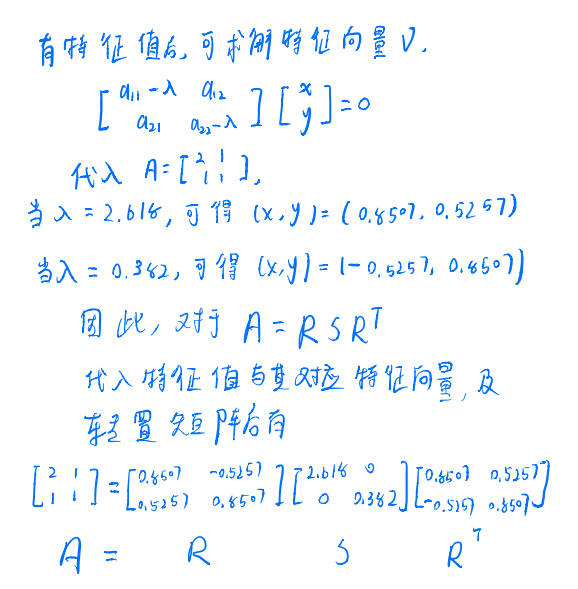 有特征值后,可求解特征向量V.
[a₁₁-λ a₁₂
a₂₁ a₂₂-λ] [x
y] = 0
代入 A=[2 1
1 1],
当λ=2.618,可得 (x,y)=(0.8507,0.5257)
当λ=0.382,可得 (x,y)=(-0.5257,0.8507)
因此,对于 A=RSRᵀ
代入特征值与其对应特征向量,及
转置矩阵后有
[2 1
1 1]=[0.8507 -0.5257
0.5257 0.8507][2.618 0
0 0.382][0.8507 0.5257
-0.5257 0.8507]
A = R S Rᵀ